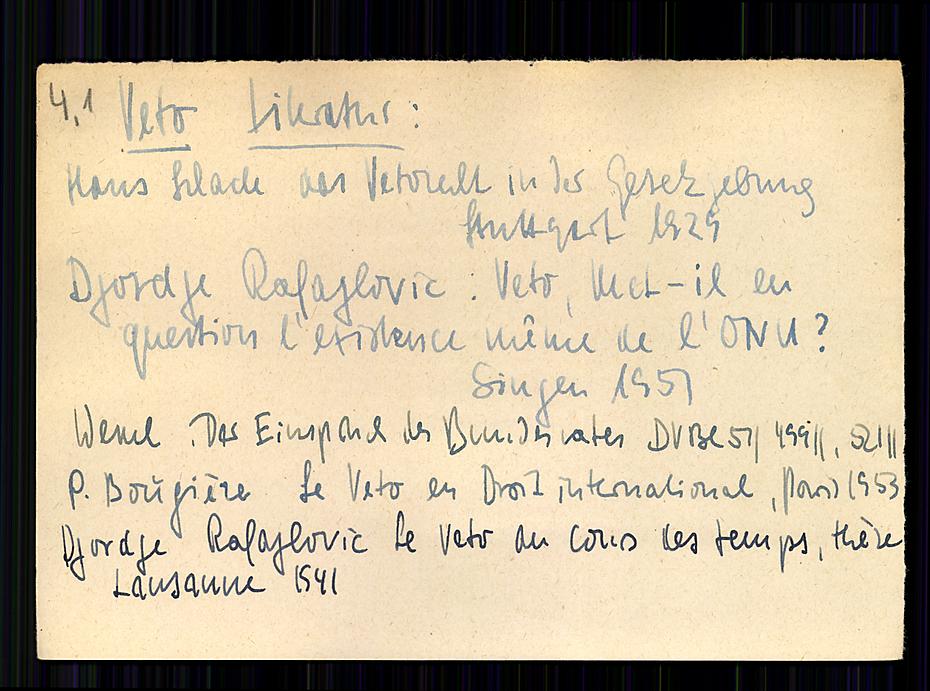 4,1 Veto Literatur:
Hans Schade das Vetorecht in der Gesetzgebung
Stuttgart 1929
Djordje Rafajlovic : Veto, Met-il en
question l'existence même de l'ONU?
Singen 1951
Der Einspruch des Bundesrates DVBl 51 499ff, 521ff
P. Bougière Le Veto en Droit international, Paris 1953
Djordje Rafajlovic Le Veto au cours des temps, thèse
Lausanne 1941